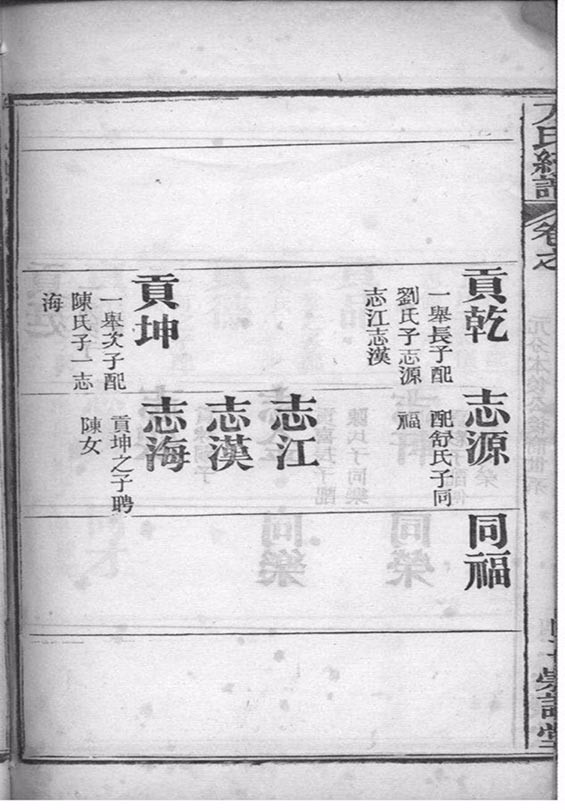 卷之
貢乾
一舉長子配
劉氏子志源
志江志漢
貢坤
一舉次子配
陳氏子一志
海
志源
配舒氏子同
福
志江
志漢
志海
貢坤之子聘
陳女
同福